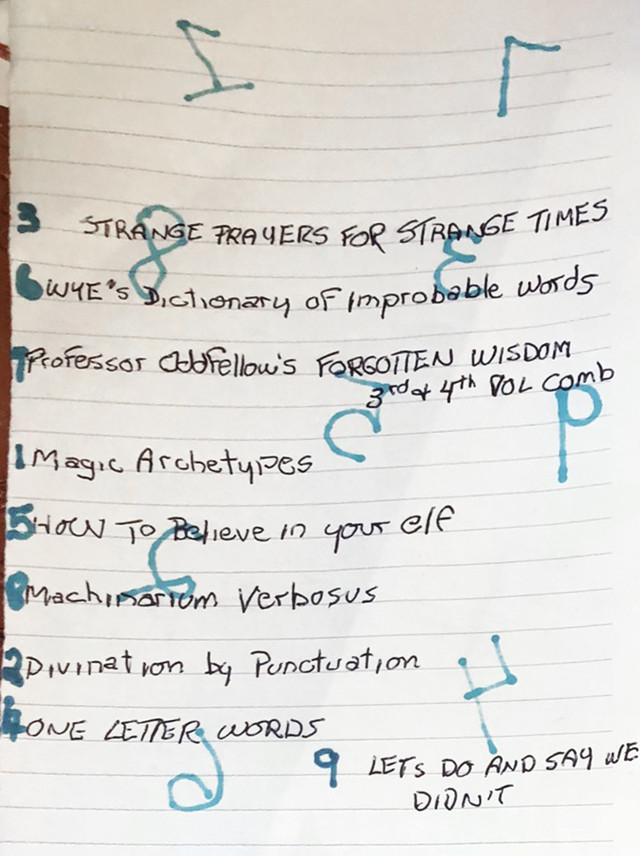 3 STRANGE PRAYERS FOR STRANGE TIMES
6 WYE'S Dictionary of Improbable words
7 Professor Oddfellow's FORGOTTEN WISDOM
3rd & 4th VOL COMB
1 Magic Archetypes
5 HOW TO Believe in your elf
8 Machinarium Verbosus
2 Divination by Punctuation
4 ONE LETTER WORDS
9 LETS DO AND SAY WE
DIDN'T